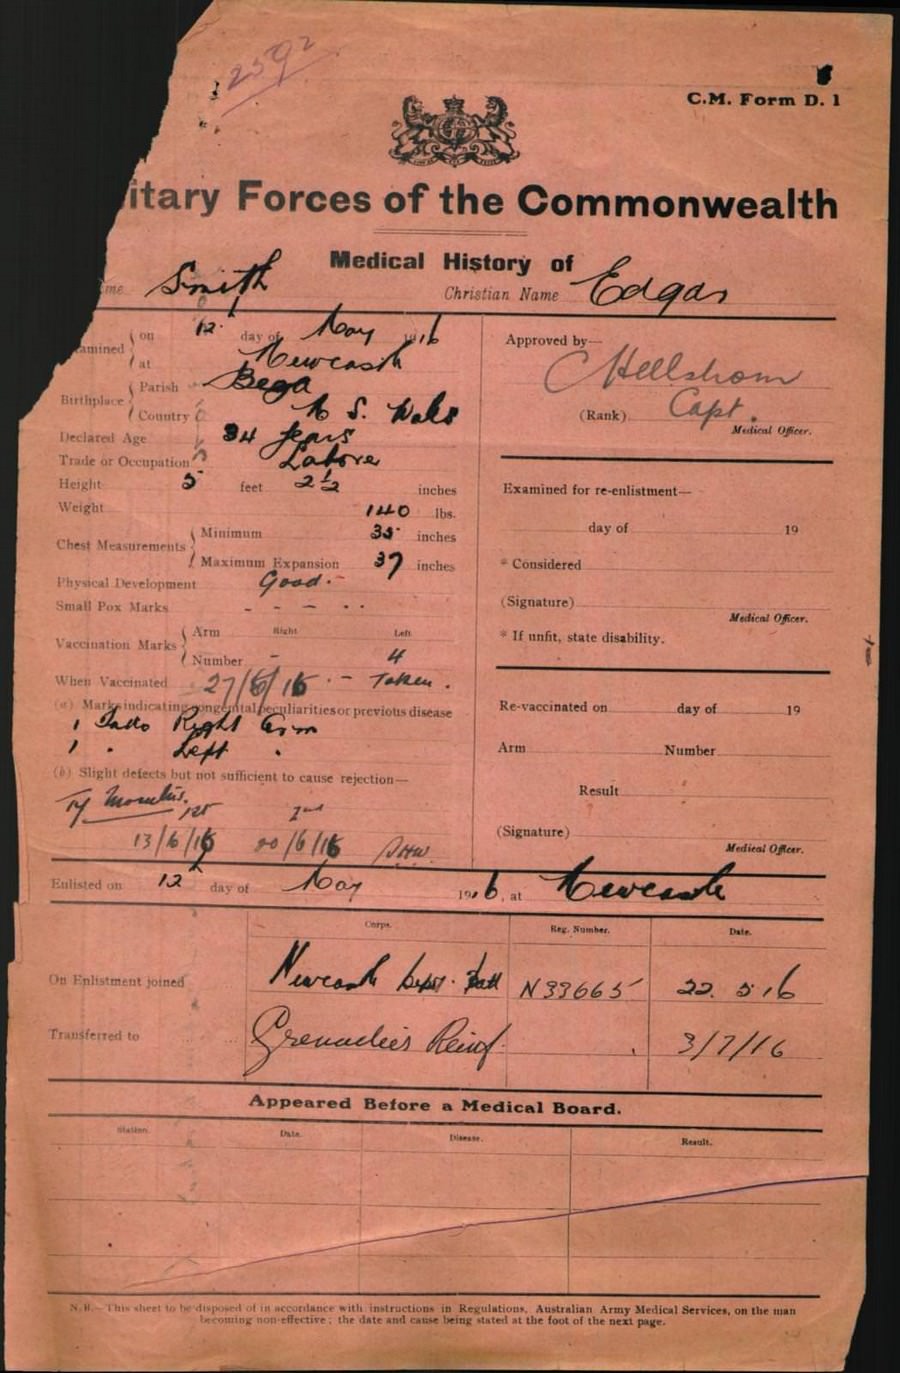 2592
C.M. Form D. 1
itary Forces of the Commonwealth
Medical History of
me Smith Christian Name Edgar
amined on 12 day of May 1916
at Newcastle
Birthplace Parish Bega
Country N S. Wales
Declared Age 34 years
Trade or Occupation Laborer
Height 5 feet 2½ inches
Weight 140 lbs.
Chest Measurements Minimum 35 inches
Maximum Expansion 37 inches
Physical Development Good.
Small Pox Marks - - - - -
Vaccination Marks Arm Right Left
Number - 4
When Vaccinated 27/5/16 - Taken.
(a) Marks indicating congenital peculiarities or previous disease
1 Right Arm
1 " Left "
(b) Slight defects but not sufficient to cause rejection—
Ty 1st 2nd
13/6/16 20/6/16
Approved by—
Hellstrom
(Rank) Capt.
Medical Officer.
Examined for re-enlistment—
day of 19
* Considered
(Signature)
Medical Officer.
* If unfit, state disability.
Re-vaccinated on day of 19
Arm Number
Result
(Signature)
Medical Officer.
Enlisted on 12 day of May 1916, at Newcastle
Corps. Reg. Number. Date.
On Enlistment joined Newcastle Depot Batt N33665 22. 5 16
Transferred to Grenadiers Reinf. 3/7/16
Appeared Before a Medical Board.
Station. Date. Disease. Result.
N.B.—This sheet to be disposed of in accordance with instructions in Regulations, Australian Army Medical Services, on the man
becoming non-effective; the date and cause being stated at the foot of the next page.